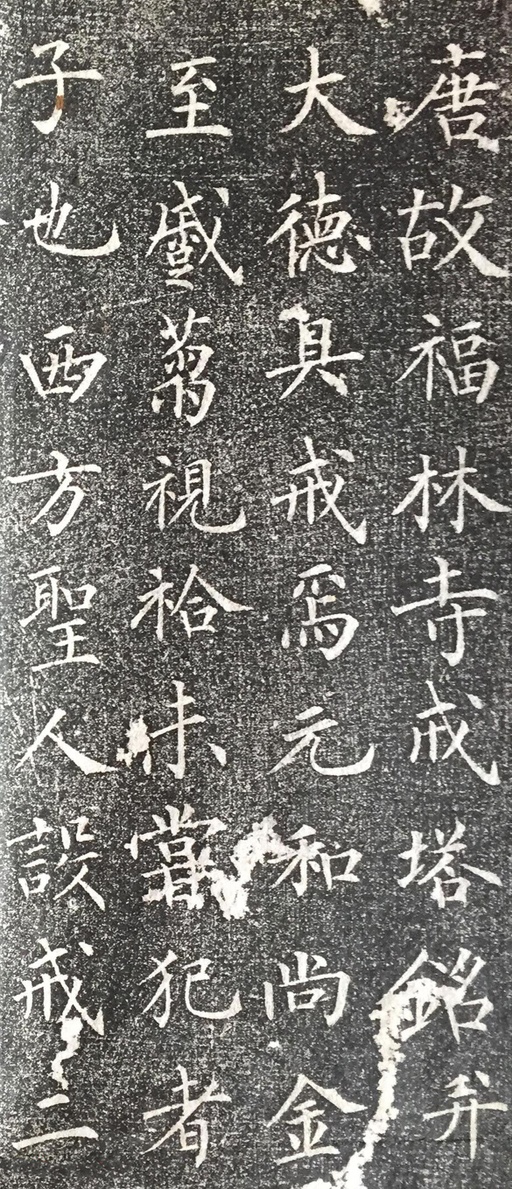 唐故福林寺戒塔銘并
大德具戒焉元和尚金
至蒭視祫未嘗犯者
子也西方聖人設戒二